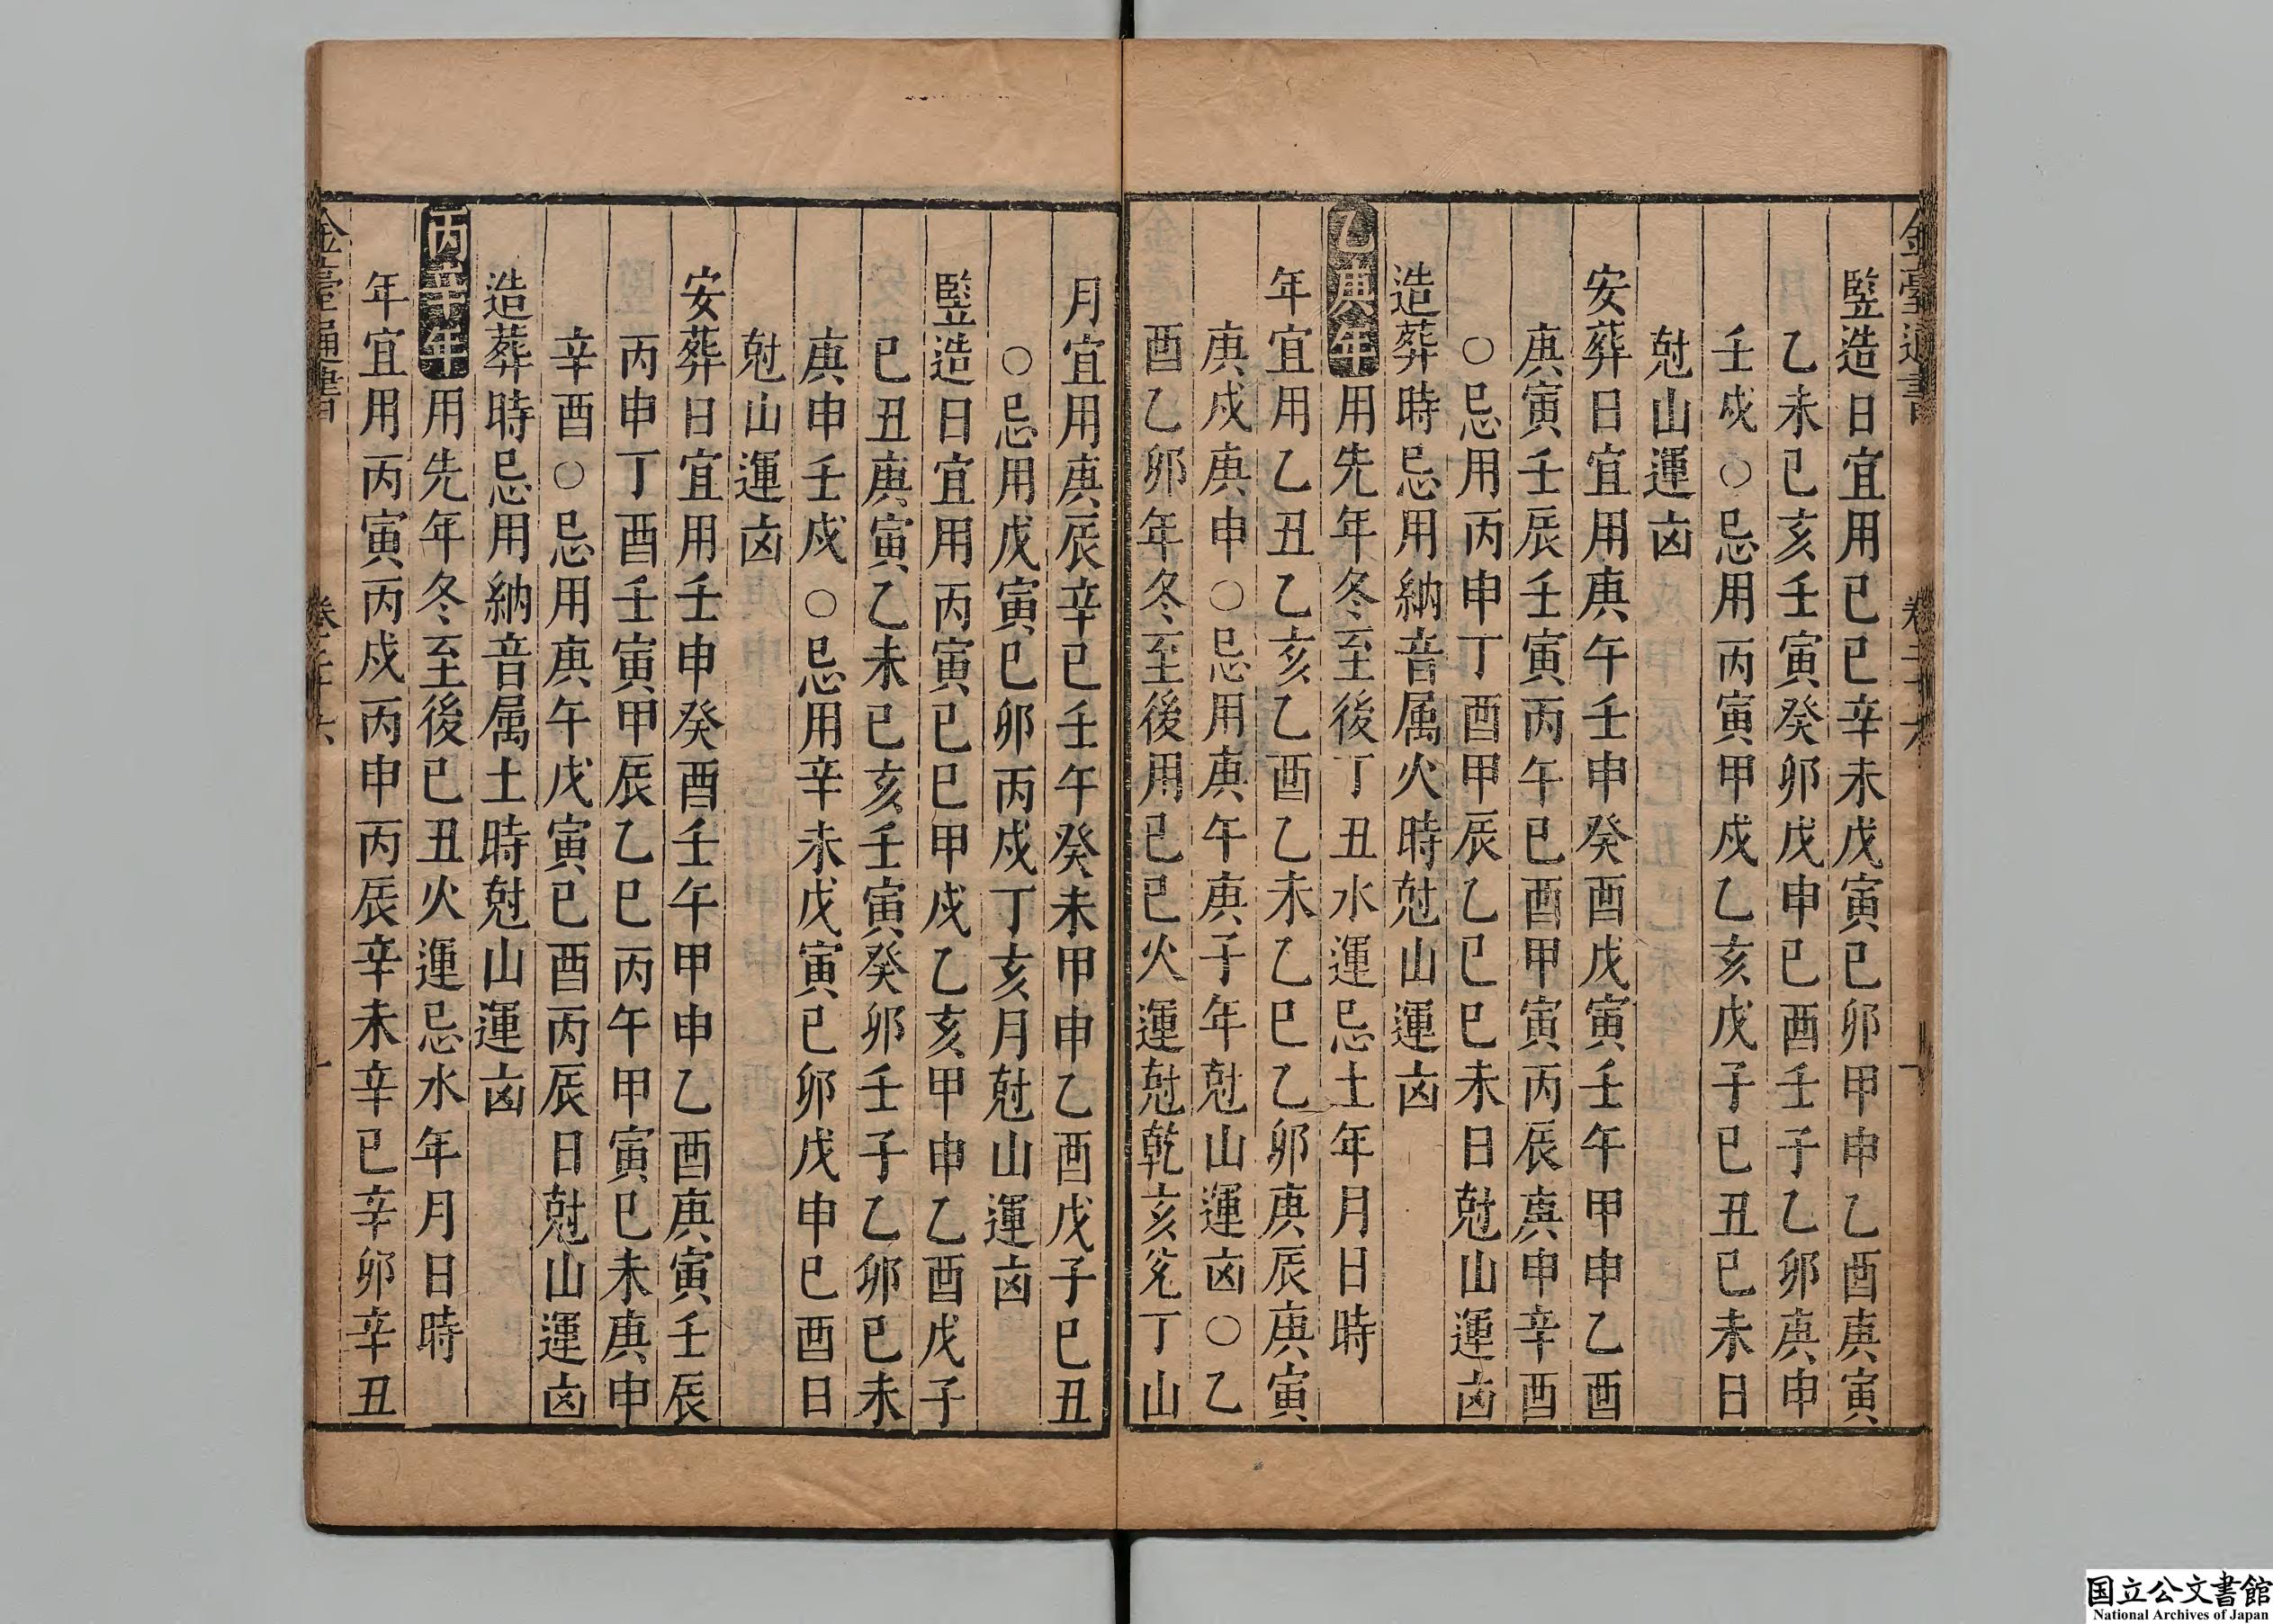 金臺通書
卷二十六
竪造日宜用己巳辛未戊寅己卯甲申乙酉庚寅
乙未己亥壬寅癸卯戊申己酉壬子乙卯庚申
壬戌○忌用丙寅甲戌乙亥戊子己丑己未日
尅山運凶
安葬日宜用庚午壬申癸酉戊寅壬午甲申乙酉
庚寅壬辰壬寅丙午己酉甲寅丙辰庚申辛酉
○忌用丙申丁酉甲辰乙巳己未日尅山運凶
造葬時忌用納音属火時尅山運凶
乙庚年用先年冬至後丁丑水運忌土年月日時
年宜用乙丑乙亥乙酉乙未乙巳乙卯庚辰庚寅
庚戌庚申○忌用庚午庚子年尅山運凶○乙
酉乙卯年冬至後用己巳火運尅乾亥兊丁山
月宜用庚辰辛巳壬午癸未甲申乙酉戊子己丑
○忌用戊寅己卯丙戌丁亥月尅山運凶
竪造日宜用丙寅己巳甲戌乙亥甲申乙酉戊子
己丑庚寅乙未己亥壬寅癸卯壬子乙卯己未
庚申壬戌○忌用辛未戊寅己卯戊申己酉日
尅山運凶
安葬日宜用壬申癸酉壬午甲申乙酉庚寅壬辰
丙申丁酉壬寅甲辰乙巳丙午甲寅己未庚申
辛酉○忌用庚午戊寅己酉丙辰日尅山運凶
造葬時忌用納音属土時尅山運凶
丙辛年用先年冬至後己丑火運忌水年月日時
年宜用丙寅丙戌丙申丙辰辛未辛巳辛卯辛丑
金臺通書
卷二十六
国立公文書館
National Archives of Japan